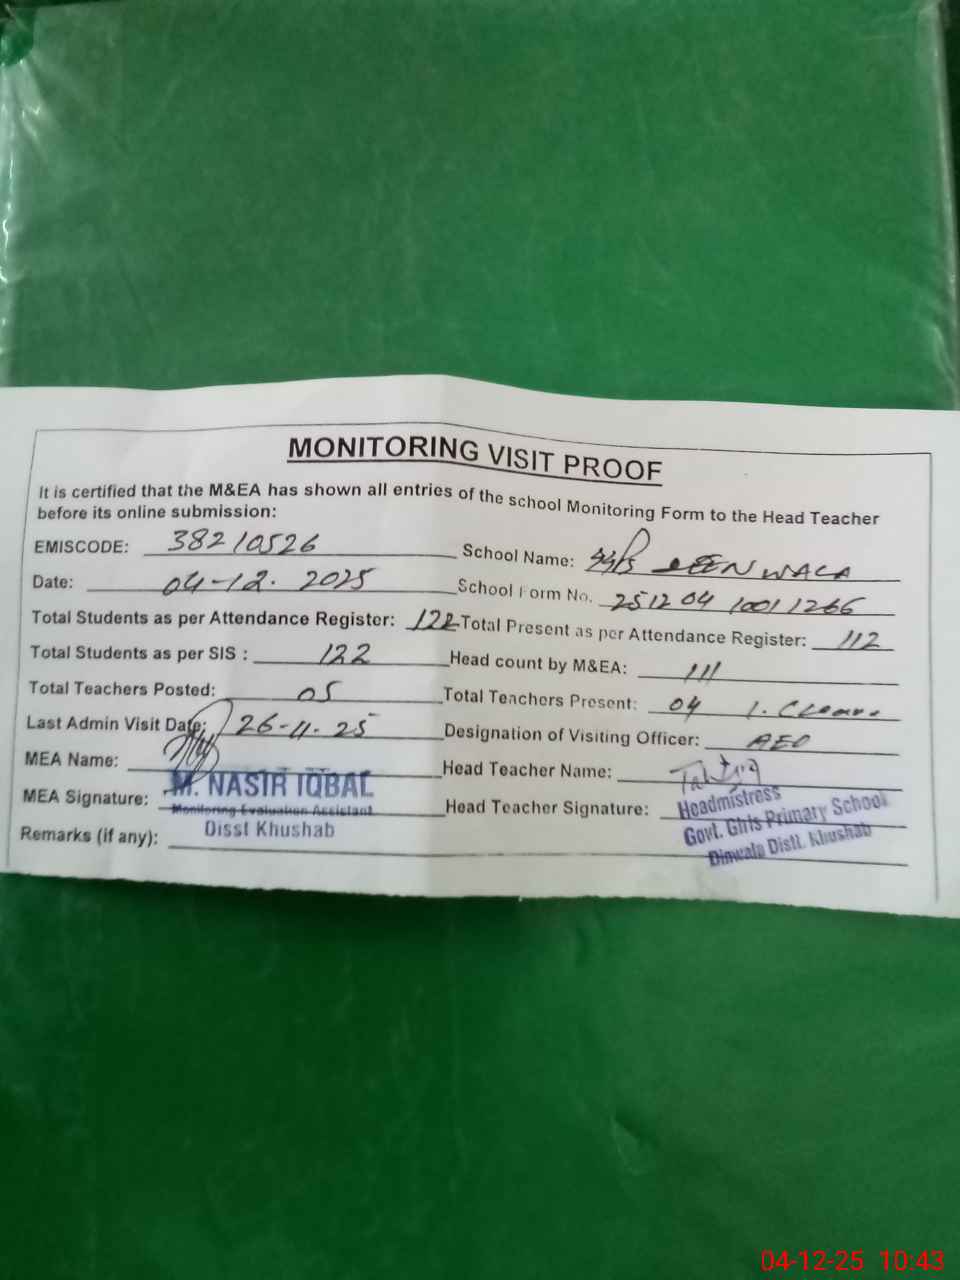 MONITORING VISIT PROOF
It is certified that the M&EA has shown all entries of the school Monitoring Form to the Head Teacher
before its online submission:
EMISCODE: 38210526 School Name: GGPS DEEN WALA
Date: 04-12. 2025 School Form No. 251204 10011266
Total Students as per Attendance Register: 122 Total Present as per Attendance Register: 112
Total Students as per SIS : 122 Head count by M&EA: 111
Total Teachers Posted: 05 Total Teachers Present: 04 1.
Last Admin Visit Date: 26-11-25 Designation of Visiting Officer: AEO
MEA Name: Head Teacher Name:
M. NASIR IQBAL
MEA Signature: Monitoring Evaluation Assistant Head Teacher Signature: Headmistress
Disst Khushab Govt. Girls Primary School
Remarks (if any): Dinwala Distt. Khushab
04-12-25 10:43